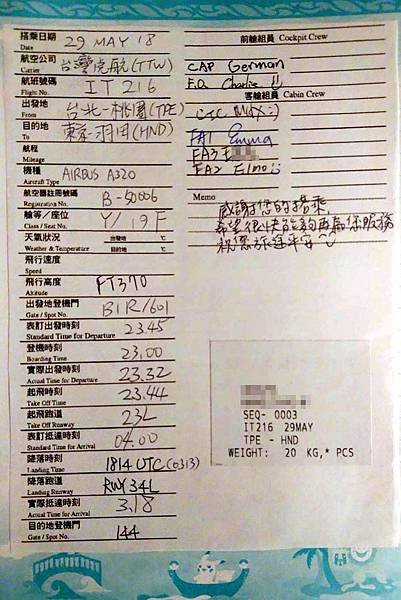 搭乘日期 Date 29 MAY 18
航空公司 Carrier 台灣虎航(TTW)
航班號碼 Flight No. IT216
出發地 From 台北-桃園(TPE)
目的地 To 東京-羽田(HND)
航程 Mileage
機種 Aircraft Type AIRBUS A320
航空器註冊號碼 Registration No. B-50006
艙等/座位 Class / Seat No. Y/19F
天氣狀況 Weather & Temperature 出發地 ℃ 目的地 ℃
飛行速度 Speed
飛行高度 Altitude FT370
出發地登機門 Gate / Spot No. B1R/601
表訂出發時刻 Standard Time for Departure 23.45
登機時刻 Boarding Time 23.00
實際出發時刻 Actual Time for Departure 23.32
起飛時刻 Take Off Time 23.44
起飛跑道 Take Off Runway 23L
表訂抵達時刻 Standard Time for Arrival 04.00
降落時刻 Landing Time 1814 UTC (0313)
降落跑道 Landing Runway RWY34L
實際抵達時刻 Actual Time for Arrival 3.18
目的地登機門 Gate / Spot No. 144
前艙組員 Cockpit Crew
CAP German
F.O. Charlie !!
客艙組員 Cabin Crew
CIC MAX:)
FA1 Emma
FA3
FA2 Elmo
Memo
感謝您的搭乘,
希望很快能夠再為您服務
祝您旅途平安
SEQ- 0003
IT216 29MAY
TPE - HND
WEIGHT: 20 KG,* PCS